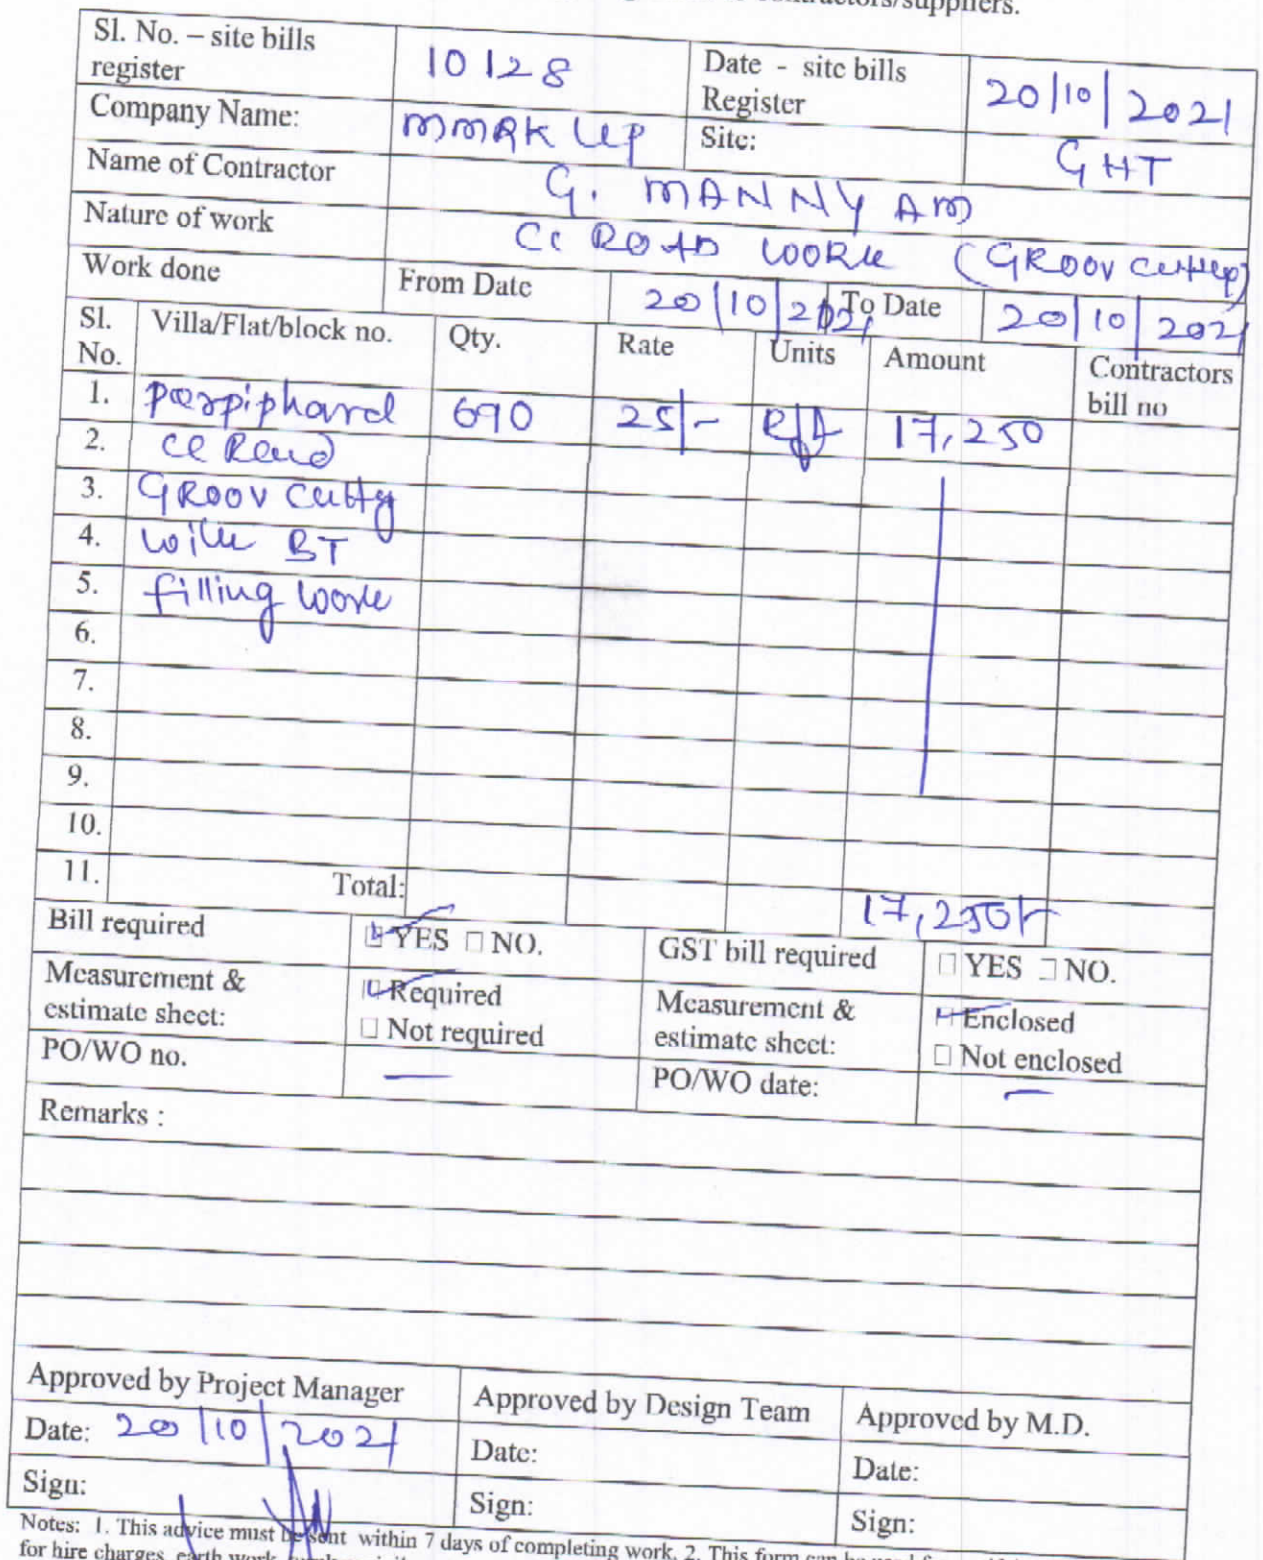 contractors/suppliers.
Sl. No. – site bills register 10128 Date - site bills Register 20/10/2021
Company Name: MMRK LLP Site: GHT
Name of Contractor G. MANNYAM
Nature of work CC ROAD WORK (GROOV cutting)
Work done From Date 20/10/2021 To Date 20/10/2021
Sl. No. Villa/Flat/block no. Qty. Rate Units Amount Contractors bill no
1. perpipharal 690 25/- Rft 17,250
2. CC Road
3. GROOV cutting
4. with BT
5. filling work
6.
7.
8.
9.
10.
11. Total: 17,250/-
Bill required YES NO. GST bill required YES NO.
Measurement & estimate sheet: Required Not required Measurement & estimate sheet: Enclosed Not enclosed
PO/WO no. — PO/WO date: —
Remarks :
Approved by Project Manager Approved by Design Team Approved by M.D.
Date: 20/10/2021 Date: Date:
Sign: Sign: Sign:
Notes: 1. This advice must be sent within 7 days of completing work. 2. This form can be used
for hire charges, earth work,